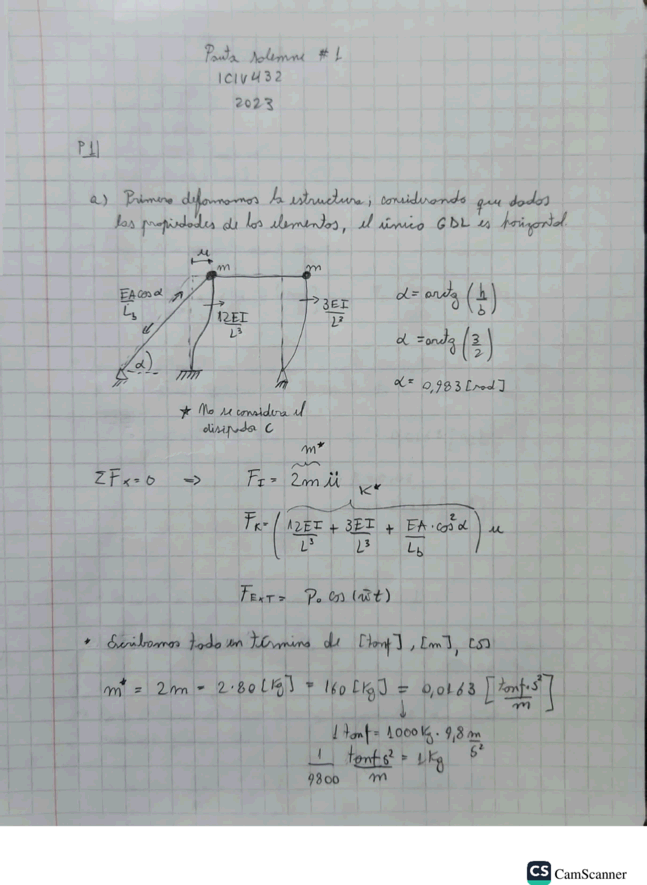 Pauta solemne #1
ICIV432
2023
P1|
a) Primero deformamos la estructura, considerando que dados
las propiedades de los elementos, el único GDL es horizontal.
u
m
m
EA cos α
L_b
12EI
L³
3EI
L³
α
α = arctg (h/b)
α = arctg (3/2)
α = 0,983 [rad]
* No se considera el
disipador C
m*
ΣFx = 0 => F_I = 2m ü
K*
F_K = (12EI/L³ + 3EI/L³ + EA/L_b · cos²α) u
F_EXT = P₀ cos (w̄t)
• Escribamos todo en término de [tonf], [m], [s]
m* = 2m = 2·80 [kg] = 160 [kg] = 0,0163 [tonf·s²/m]
↓
1 tonf = 1000 kg · 9,8 m/s²
1/9800 tonf s²/m = 1 kg
CS CamScanner